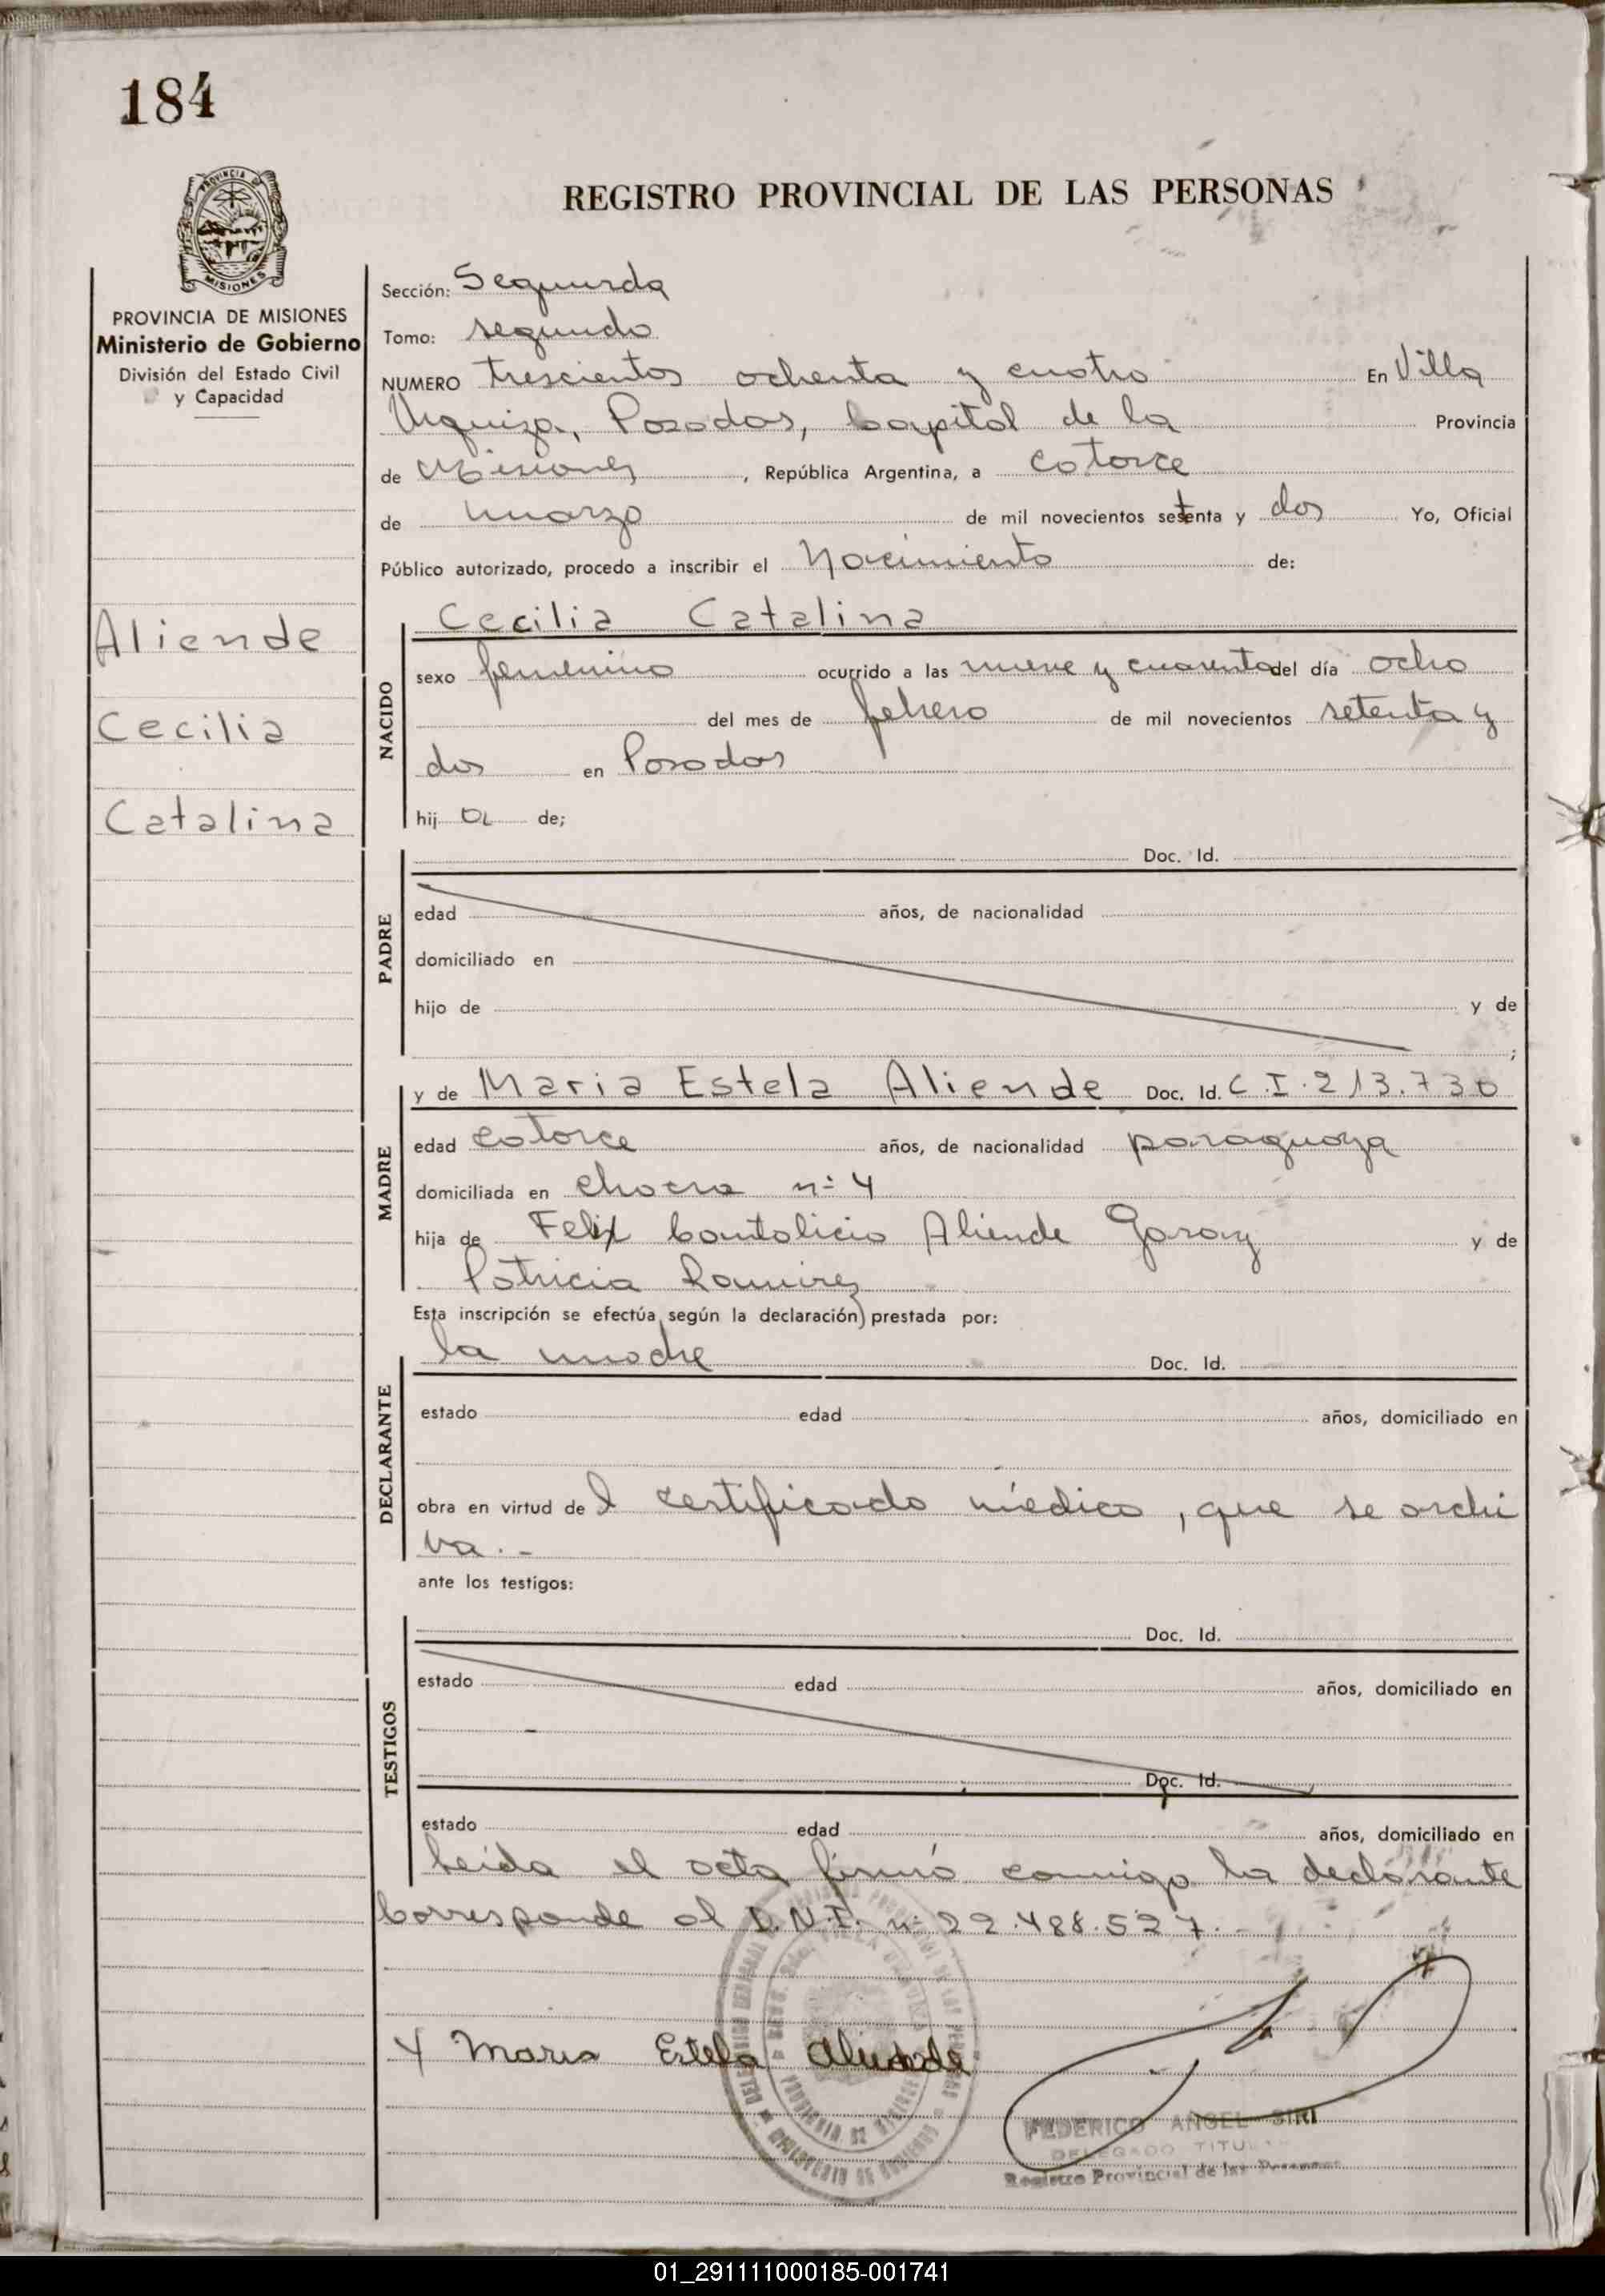 184
REGISTRO PROVINCIAL DE LAS PERSONAS
PROVINCIA DE
MISIONES
PROVINCIA DE MISIONES
Ministerio de Gobierno
División del Estado Civil
y Capacidad
Aliende
Cecilia
Catalina
Sección: Segunda
Tomo: segundo
NUMERO trescientos ochenta y cuatro En Villa
Urquiza, Posadas, Capital de la Provincia
de Misiones, República Argentina, a catorce
de marzo de mil novecientos setenta y dos Yo, Oficial
Público autorizado, procedo a inscribir el Nacimiento de:
Cecilia Catalina
NACIDO
sexo femenino ocurrido a las nueve y cuarenta del día ocho
del mes de febrero de mil novecientos setenta y
dos en Posadas
hija de;
PADRE
Doc. Id.
edad años, de nacionalidad
domiciliado en
hijo de y de
;
MADRE
y de Maria Estela Aliende Doc. Id. C.I. 213.730
edad catorce años, de nacionalidad paraguaya
domiciliada en chacra nº 4
hija de Felix Cantalicio Aliende Garay y de
Patricia Ramirez
Esta inscripción se efectúa según la declaración prestada por:
DECLARANTE
la madre Doc. Id.
estado edad años, domiciliado en
obra en virtud del certificado médico, que se archi
va.-
ante los testigos:
TESTIGOS
Doc. Id.
estado edad años, domiciliado en
Doc. Id.
estado edad años, domiciliado en
Leida el acta firmó conmigo la declarante
Corresponde al D.N.I. nº 22.488.527.
Maria Estela Aliende
FEDERICO ANGEL SIRI
DELEGADO TITULAR
Registro Provincial de las Personas
01_291111000185-001741